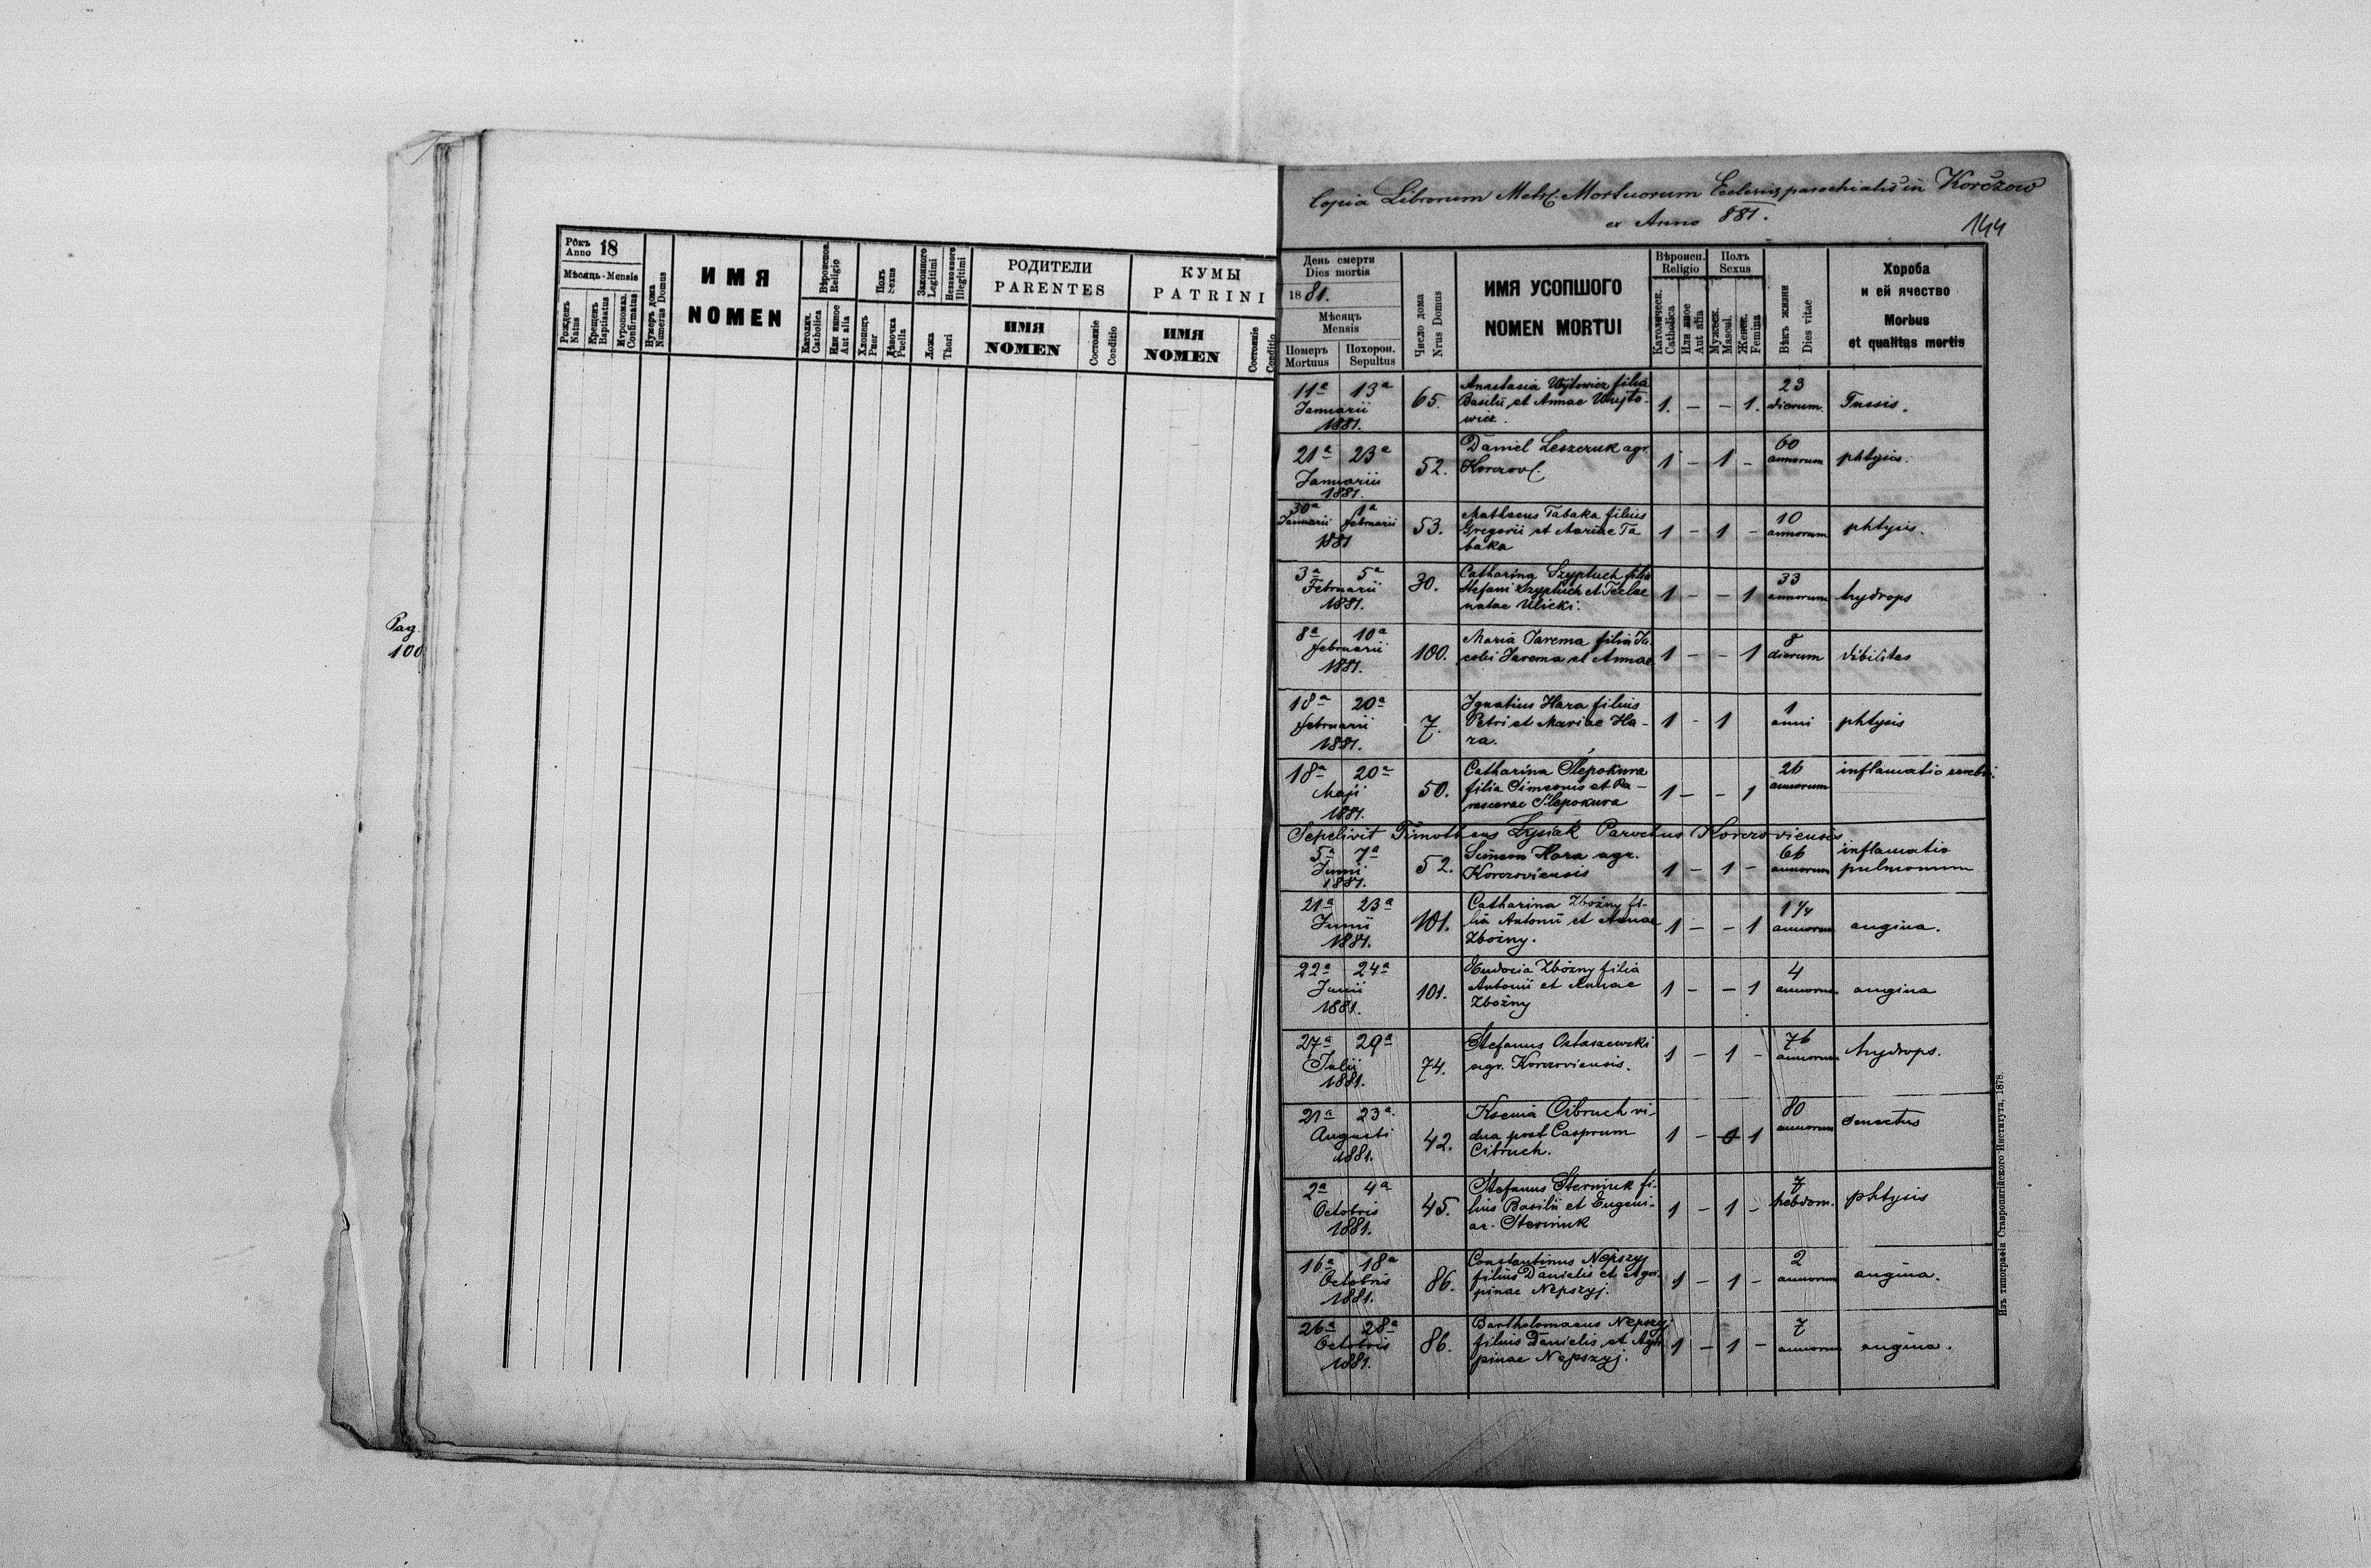 Copia Librorum Metr. Mortuorum Ecclesiæ parochialis in Korczow
ex Anno 881.
144
Рôкъ
Anno 18
Мѣсяць - Mensis
Рожденъ
Natus
Крещенъ
Baptisatus
Мѵропомаз.
Confirmatus
Нумеръ дома
Numerus Domus
ИМЯ
NOMEN
Вѣроиспов.
Religio
Католич.
Catholica
Или инное
Aut alia
Полъ
Sexus
Хлопецъ
Puer
Дѣвочка
Puella
Законного
Legitimi
Незаконного
Illegitimi
Ложа
Thori
РОДИТЕЛИ
PARENTES
ИМЯ
NOMEN
Состояніе
Conditio
КУМЫ
PATRINI
ИМЯ
NOMEN
Состояніе
Conditio
Pag.
100
День смерти
Dies mortis
1881.
Мѣсяцъ
Mensis
Померъ
Mortuus
Похорон.
Sepultus
Число дома
Nrus Domus
ИМЯ УСОПШОГО
NOMEN MORTUI
Вѣроисп.
Religio
Католическ.
Catholica
Или иное
Aut alia
Полъ
Sexus
Мужеск.
Mascul.
Женск.
Femina
Вѣкъ жизни
Dies vitae
Хороба
и ей ячество
Morbus
et qualitas mortis
11a 13a
Januarii
1881.
65.
Anastasia Wojtowicz filia
Basilii et Annae Wujto-
wicz.
1. - - 1.
23
dierum.
Tussis.
21a 23a
Januarii
1881.
52.
Daniel Leszczuk agr.
Korczov.
1 - 1 -
60
annorum
phtysis.
30a 1a
Januarii februarii
1881
53.
Mathaeus Tabaka filius
Gregorii et Mariae Ta
baka
1 - 1 -
10
annorum
phtysis.
3a 5a
Februarii
1881.
30.
Catharina Szyptuch filia
Stefani Szyptuch et Teclae
natae Ulicki.
1 - - 1
33
annorum
hydrops
8a 10a
februarii
1881.
100.
Maria Jarema filia Ja
cobi Jarema et Annae
1 - - 1
8
dierum
dibilitas
18a 20a
februarii
1881.
7.
Ignatius Hara filius
Petri et Mariae Ha-
ra.
1 - 1
1
anni
phtysis
18a 20a
Maji
1881.
50.
Catharina Slepokura
filia Simeonis et Pa-
rascevae Slepokura
1 - - 1
26
annorum
inflamatio cerebri.
Sepelivit Timotheus Lysiak Parochus Korczoviensis
5a 7a
Junii
1881.
52.
Simeon Hara agr.
Korczoviensis
1 - 1 -
66
annorum
inflamatio
pulmonum
21a 23a
Junii
1881.
101.
Catharina Zbożny fi-
lia Antonii et Annae
Zbożny.
1 - - 1
1 1/4
annorum
angina.
22a 24a
Junii
1881.
101.
Eudocia Zbożny filia
Antonii et Annae
Zbożny
1 - - 1
4
annorum
angina
27a 29a
Julii
1881.
74.
Stefanus Ostaszewski
agr. Korczoviensis.
1 - 1 -
76
annorum
hydrops.
21a 23a.
Augusti
1881.
42.
Ksenia Cibruch vi-
dua post Casprum
Cibruch.
1 - 1
80
annorum
senectus
2a 4a
Octobris
1881.
45.
Stefanus Sterniuk fi-
lius Basilii et Eugeni-
ae. Sterniuk
1 - 1 -
7
hebdom.
phtysis
16a 18a
Octobris
1881.
86.
Constantinus Nepszyj
filius Danielis et Agri-
pinae Nepszyj.
1 - 1 -
2
annorum
angina.
26a 28a
Octobris
1881.
86.
Bartholomaeus Nepszyj
filius Danielis et Agri
pinae Nepszyj.
1 - 1 -
7
annorum
angina.
Изъ типографіи Ставропигійского Института, 1878.